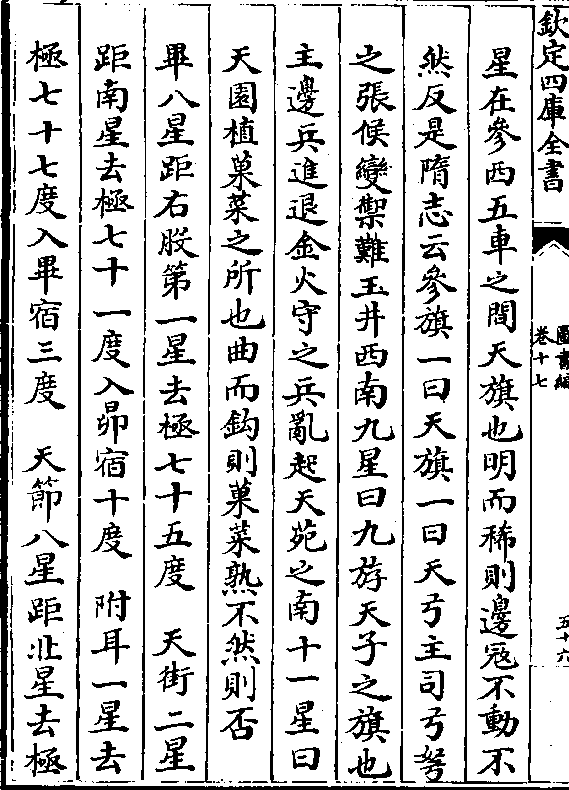 欽定四庫全書
圖書編
卷十七
五十六
星在參西五車之間天旗也明而稀則邊寇不動不
然反是隋志云參旗一曰天旗一曰天弓主司弓弩
之張候變禦難玉井西南九星曰九斿天子之旗也
主邊兵進退金火守之兵亂起天苑之南十一星曰
天園植菓菜之所也曲而鈎則菓菜熟不然則否
畢八星距右股第一星去極七十五度　天街二星
距南星去極七十一度入昴宿十度　附耳一星去
極七十七度入畢宿三度　天節八星距北星去極